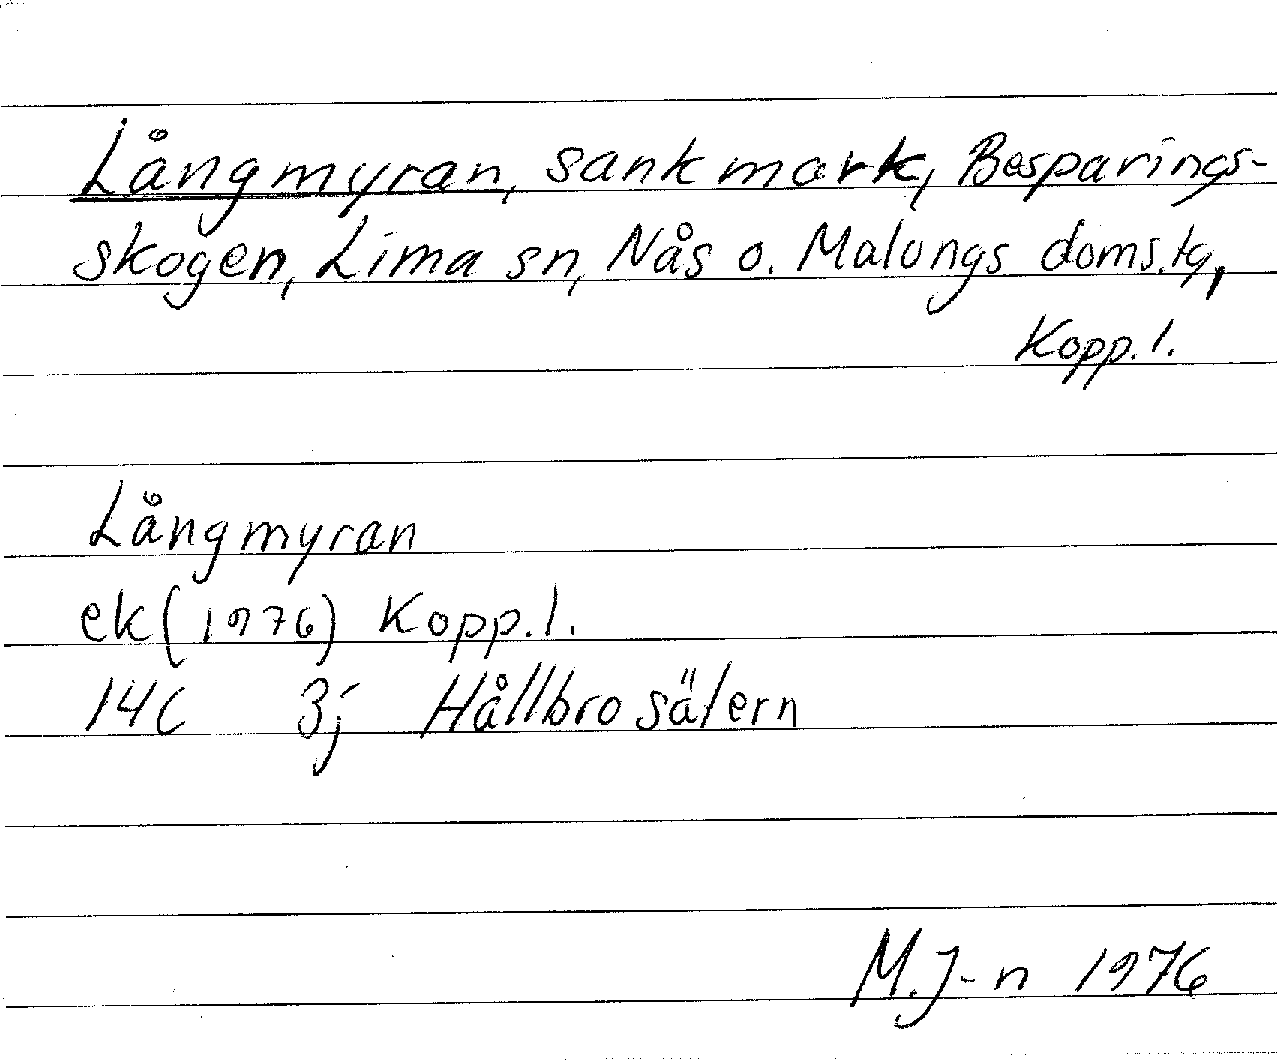 Långmyran, sank mark, Besparings-
skogen, Lima sn, Nås o. Malungs doms.tg,
Kopp.l.
Långmyran
ek (1976) Kopp.l.
14C 3j Hållbrosätern
M.J-n 1976